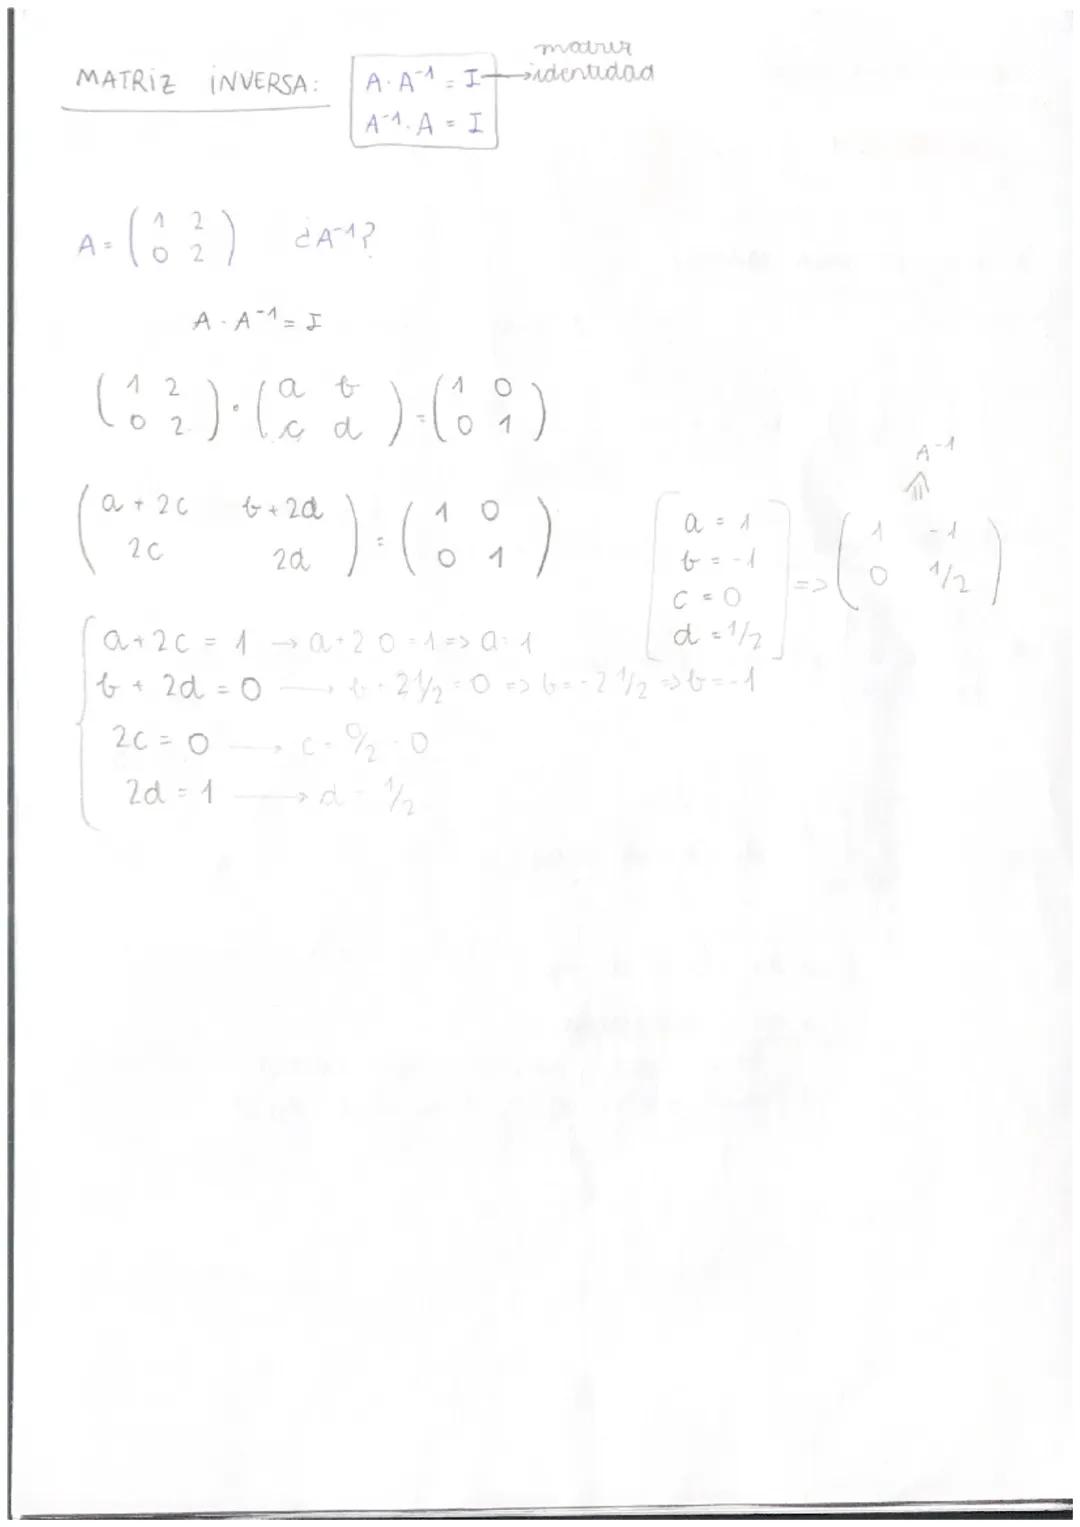 MATRIZ INVERSA: A · A⁻¹ = I → matriz identidad
A⁻¹ · A = I
A = ( 1 2 ) ¿A⁻¹?
( 0 2 )
A · A⁻¹ = I
( 1 2 ) · ( a b ) = ( 1 0 )
( 0 2 ) ( c d ) ( 0 1 )
( a + 2c b + 2d ) = ( 1 0 )
( 2c 2d ) ( 0 1 )
a + 2c = 1 → a + 2 0 = 1 => a = 1
b + 2d = 0 → b + 2 1/2 = 0 => b = - 2 1/2 => b = -1
2c = 0 → c = 0/2 = 0
2d = 1 → d = 1/2
a = 1
b = -1
c = 0
d = 1/2
=>
A⁻¹
⇑
( 1 -1 )
( 0 1/2 )